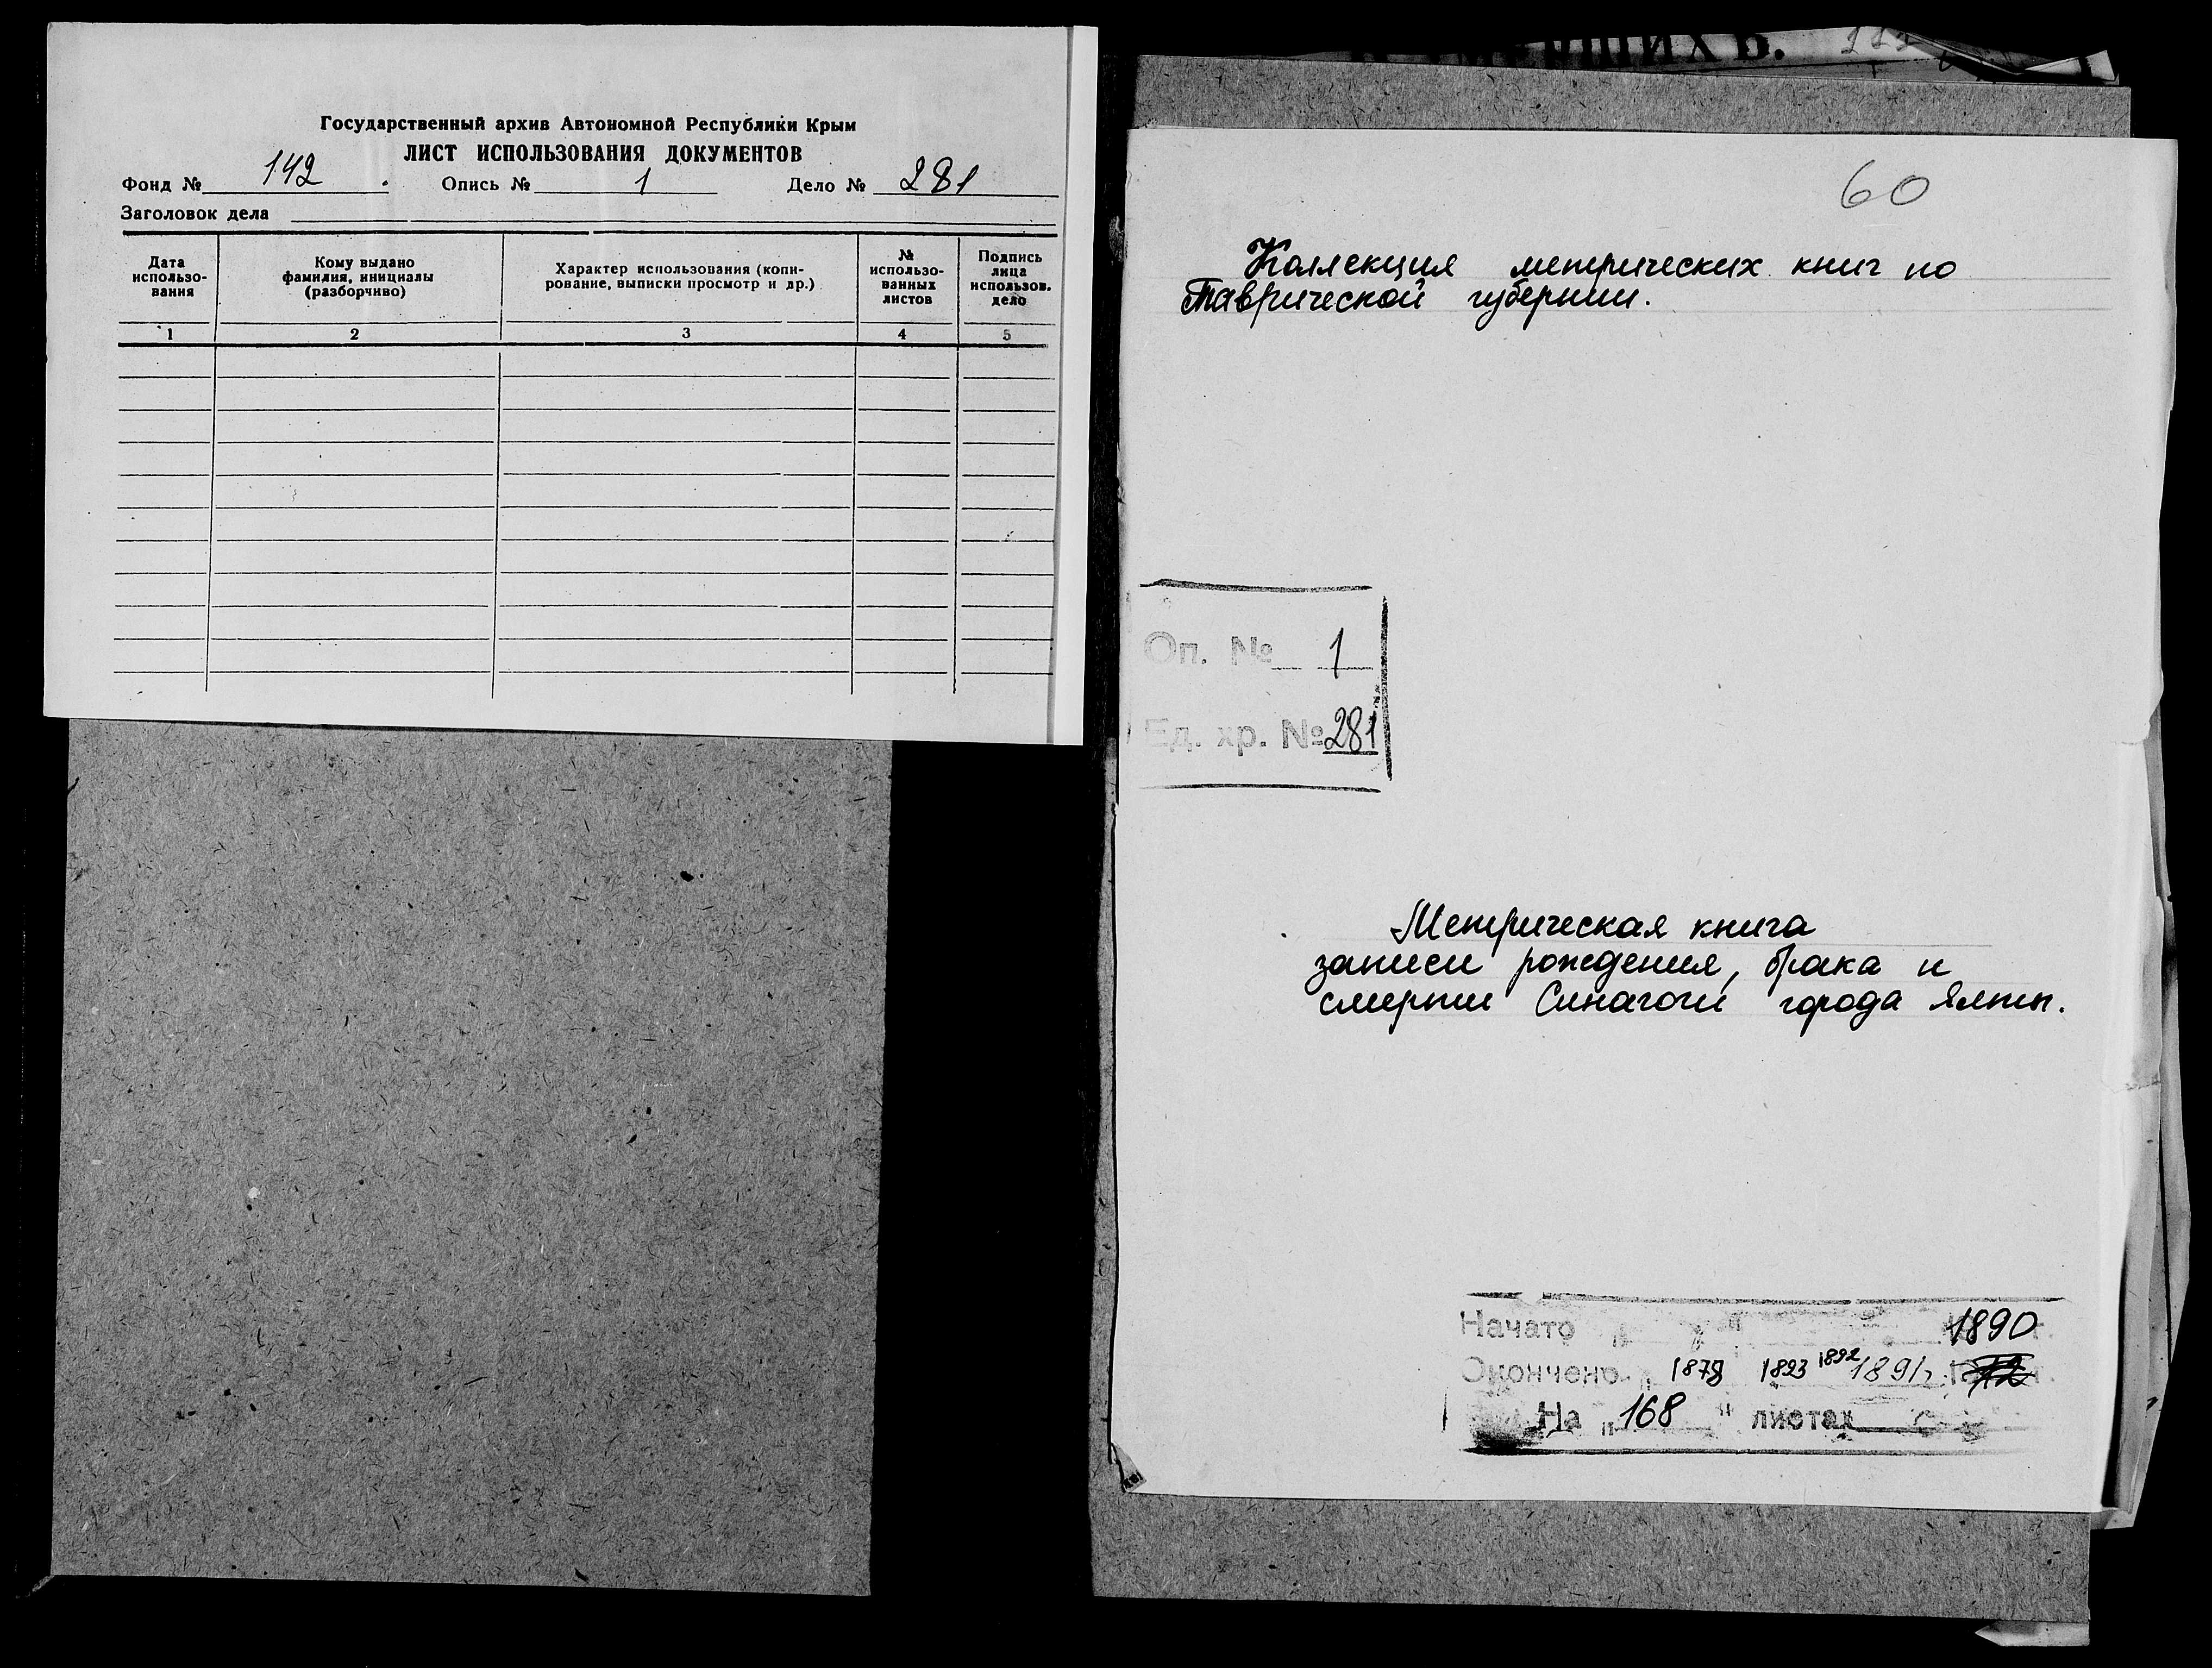 Государственный архив Автономной Республики Крым
ЛИСТ ИСПОЛЬЗОВАНИЯ ДОКУМЕНТОВ
Фонд № 142 Опись № 1 Дело № 281
Заголовок дела
Дата использо-вания
Кому выдано фамилия, инициалы (разборчиво)
Характер использования (копи-рование, выписки просмотр и др.)
№ использо-ванных листов
Подпись лица использов. дело
1 2 3 4 5
60
Коллекция метрических книг по
Таврической губернии.
Оп. № 1
Ед. хр. № 281
Метрическая книга
записи рождения, брака и
смерти Синагоги города Ялты.
Начато " " 1890
Окончено " 1893 1892 1891г.
На "168" листах